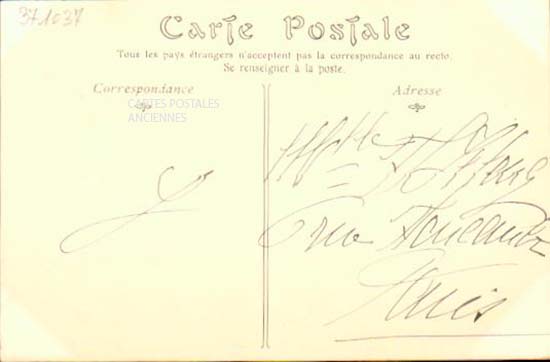 371037
Carte Postale
Tous les pays étrangers n'acceptent pas la correspondance au recto.
Se renseigner à la poste.
Correspondance
Adresse
CARTES POSTALES
ANCIENNES
rue
Paris